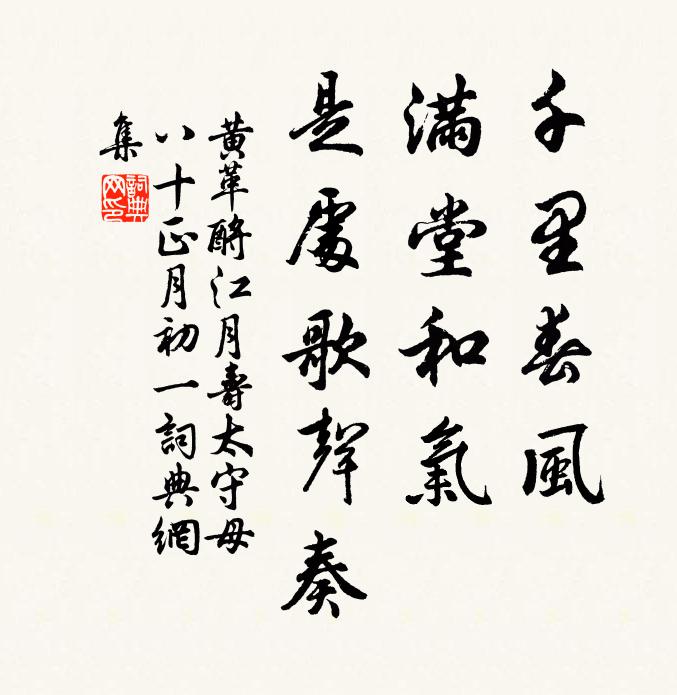 千里春風
滿堂和氣
是處歌聲奏
黃革酹江月壽太守母
八十正月初一詞典網
集
詞典網印